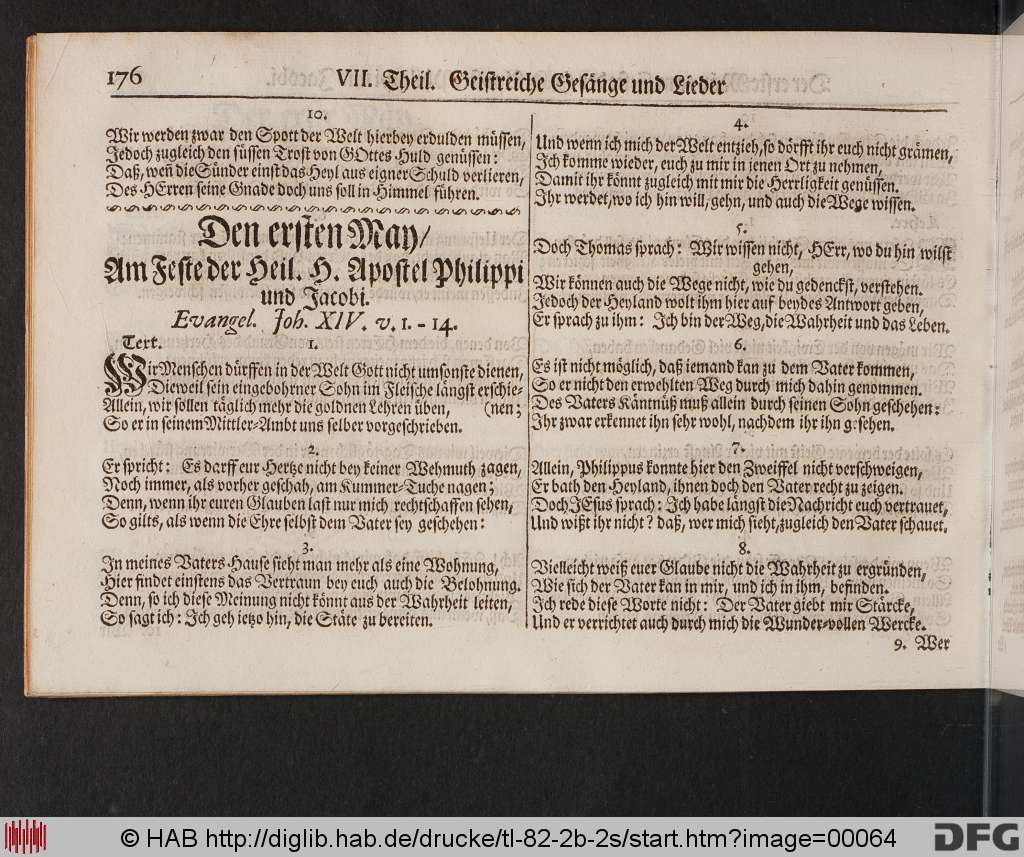 176
VII. Theil. Geistreiche Gesänge und Lieder
10.
Wir werden zwar den Spott der Welt hierbey erdulden müssen,
Jedoch zugleich den süssen Trost von GOttes Huld genüssen:
Daß, weñ die Sünder einst das Heyl aus eigner Schuld verlieren,
Des HErren seine Gnade doch uns soll in Himmel führen.
Den ersten May/
Am Feste der Heil. H. Apostel Philippi
und Jacobi.
Evangel. Joh. XIV. v. 1. - 14.
Text. 1.
Wir Menschen dürffen in der Welt Gott nicht umsonste dienen,
Dieweil sein eingebohrner Sohn im Fleische längst erschie-
Allein, wir sollen täglich mehr die goldnen Lehren üben, (nen;
So er in seinem Mittler-Ambt uns selber vorgeschrieben.
2.
Er spricht: Es darff eur Hertze nicht bey keiner Wehmuth zagen,
Noch immer, als vorher geschah, am Kummer-Tuche nagen;
Denn, wenn ihr euren Glauben last nur mich rechtschaffen sehen,
So gilts, als wenn die Ehre selbst dem Vater sey geschehen:
3.
In meines Vaters Hause sieht man mehr als eine Wohnung,
Hier findet einstens das Vertraun bey euch auch die Belohnung.
Denn, so ich diese Meinung nicht könnt aus der Wahrheit leiten,
So sagt ich: Ich geh ietzo hin, die Stäte zu bereiten.
4.
Und wenn ich mich der Welt entzieh, so dörfft ihr euch nicht grämen,
Ich komme wieder, euch zu mir in jenen Ort zu nehmen,
Damit ihr könnt zugleich mit mir die Herrligkeit genüssen.
Ihr werdet, wo ich hin will, gehn, und auch die Wege wissen.
5.
Doch Thomas sprach: Wir wissen nicht, HErr, wo du hin wilst
gehen,
Wir können auch die Wege nicht, wie du gedenckst, verstehen.
Jedoch der Heyland wolt ihm hier auf beydes Antwort geben,
Er sprach zu ihm: Ich bin der Weg, die Wahrheit und das Leben.
6.
Es ist nicht möglich, daß iemand kan zu dem Vater kommen,
So er nicht den erwehlten Weg durch mich dahin genommen.
Des Vaters Käntnüß muß allein durch seinen Sohn geschehen:
Ihr zwar erkennet ihn sehr wohl, nachdem ihr ihn gesehen.
7.
Allein, Philippus konnte hier den Zweiffel nicht verschweigen,
Er bath den Heyland, ihnen doch den Vater recht zu zeigen.
Doch JEsus sprach: Ich habe längst die Nachricht euch vertrauet,
Und wißt ihr nicht? daß, wer mich sieht, zugleich den Vater schauet.
8.
Vielleicht weiß euer Glaube nicht die Wahrheit zu ergründen,
Wie sich der Vater kan in mir, und ich in ihm, befinden.
Ich rede diese Worte nicht: Der Vater giebt mir Stärcke,
Und er verrichtet auch durch mich die Wunder-vollen Wercke.
9. Wer
© HAB http://diglib.hab.de/drucke/tl-82-2b-2s/start.htm?image=00064
DFG